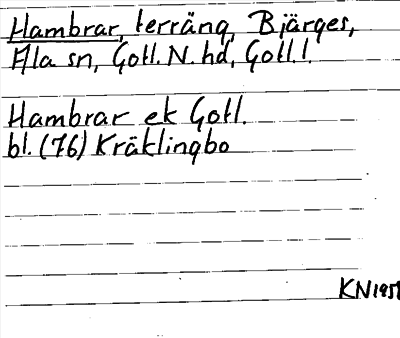 Hambrar, terräng, Bjärges,
Ala sn, Gotl. N. hd, Gotl. l.
Hambrar ek Gotl.
bl. (76) Kräklingbo
KN 1951